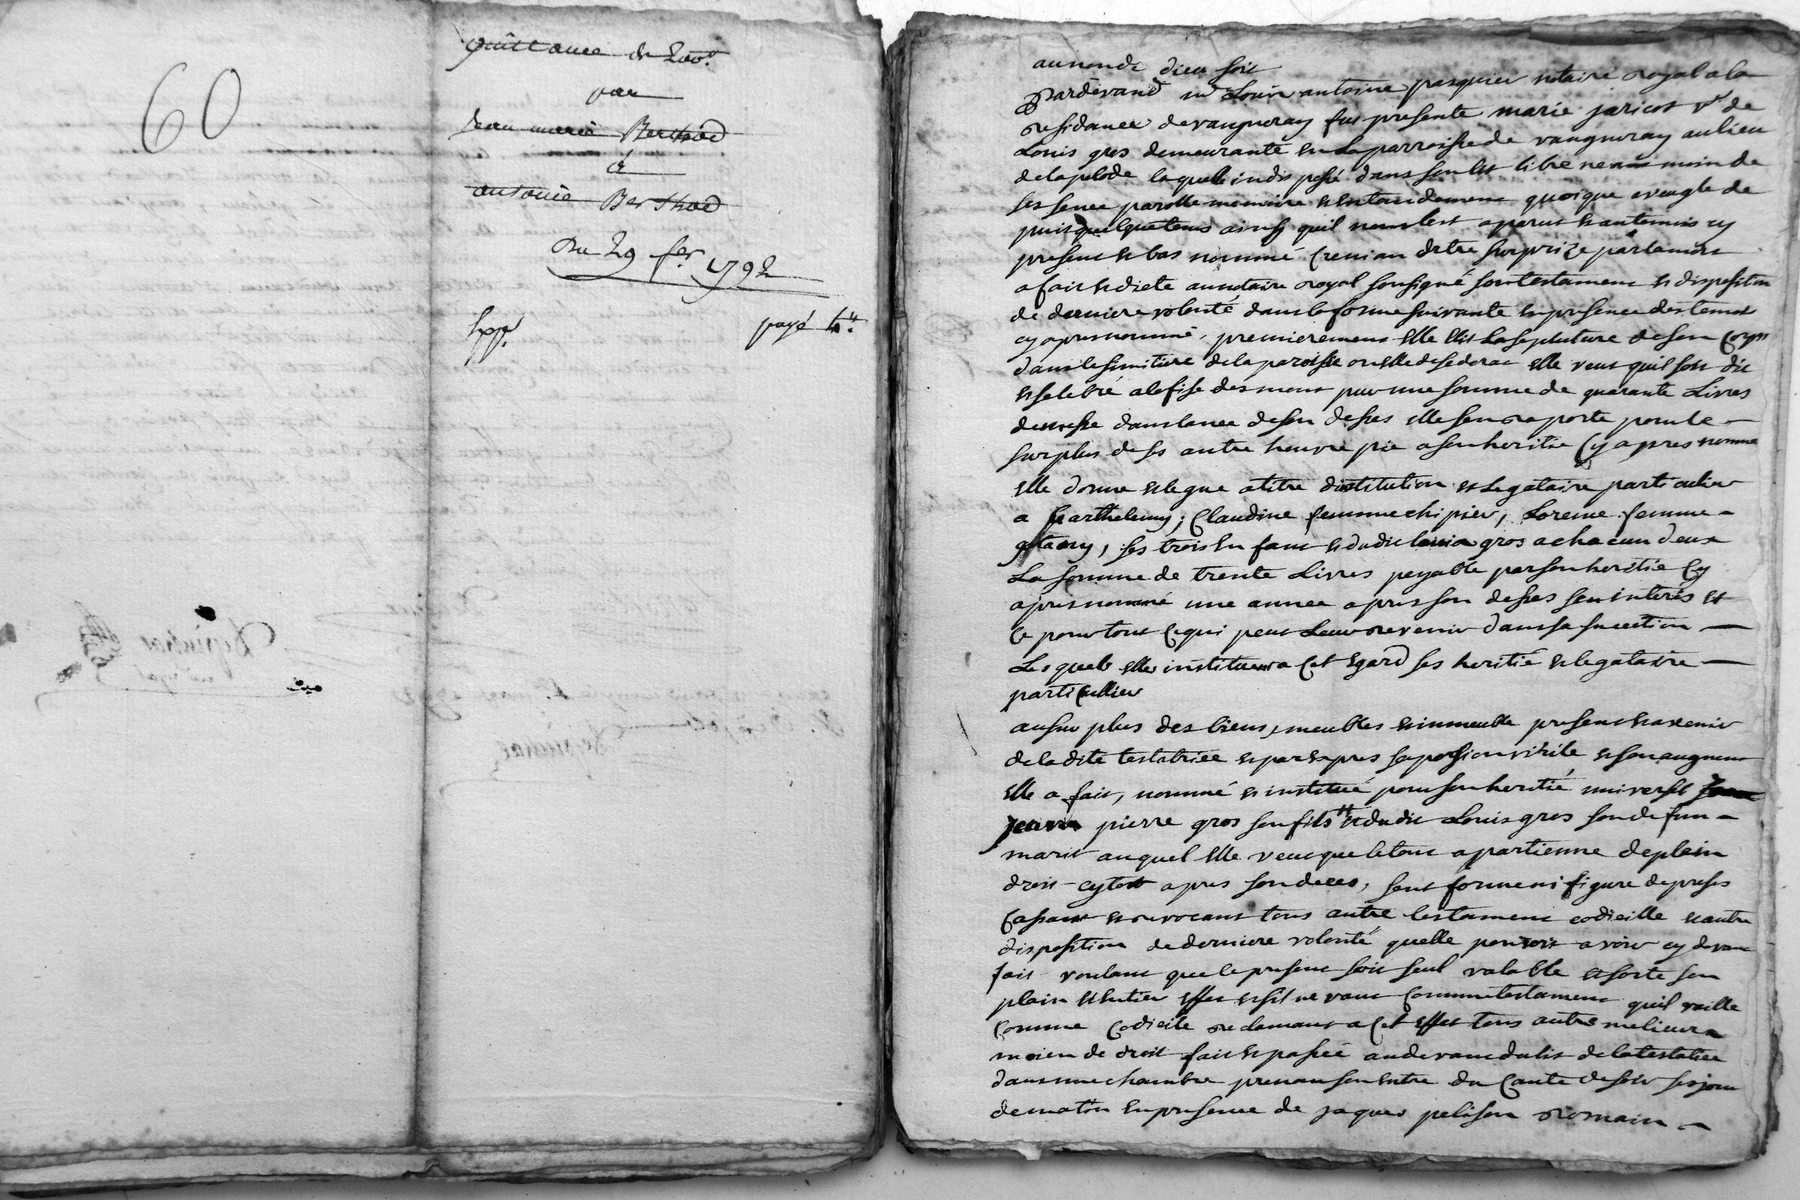 60
quittance de 200#
par
Jean marie Berthod
à
antoine Berthod
Du 29 fer 1792
payé
au nom de dieu soit
Pardevand me Louis antoine pasquier notaire royal a la
residance de vaugneray fut presente marie jaricot ve de
Louis gros demeurante en La parroisse de vaugneray au lieu
de la pelode laquelle indisposé dans son lit libre neanmoin de
ses sence parolle memoire et entendement quoique aveugle de
puis quelque tems ainsy quil nous est aparut et au temois cy
present et bas nommé creinan detre surprize par la mort
a fait et dicté au notaire royal sousigné son testament et disposition
de derniere volonté dans la forme suivante en presence des temoit
cy apres nommé, premierement elle elit La sepulture de son corps
dans le simitiere de la paroisse ou elle desedera elle veut quil soit dit
et selebré a lofise des mort pour une somme de quarante Livres
de messe dans lanee de son desses elle sen raporte pour le
surplus de ses autre heuvre pie a son heritié cy apres nommé
elle donne et legue a titre dinstitution et Legataire particulier
a Barthelemy, Claudine femme chipier, Loreme femme
ses trois enfant et dudit Louis gros a chacun deux
La somme de trente Livres payable par son heritié cy
apres nommé une annee apres son desses sen interés et
ce pour tout ce qui peut Leur revenir dans sa sucection
Les quels elle institue a cet egard ses heritié et legataire
particullier
au surplus des biens, meubles et inmeuble present et avenir
de la dite testatrice et par expres sa portion virile et son augment
elle a fait, nommé et institué pour son heritié universel
pierre gros son fils et dudit Louis gros son defun
marit auquel elle veut que le tout apartienne de plein
droit cytot apres son deces, sent forme ni figure de proses
Cassant et revocant tous autre testament codicille et autre
disposition de derniere volonté quelle pouroit avoir cy devant
fait voulant que le present soit seul valable et sorte son
plain et entier effet et sil ne vaut comme testament quil vaille
comme Codicile reclamant a cet effet tous autre melieur
moien de droit fait et passée au devant du lit de la testatrice
dans une chambre prenan son entre du Cauté de soir ses jour
de matin en presence de jaques pelisson romain